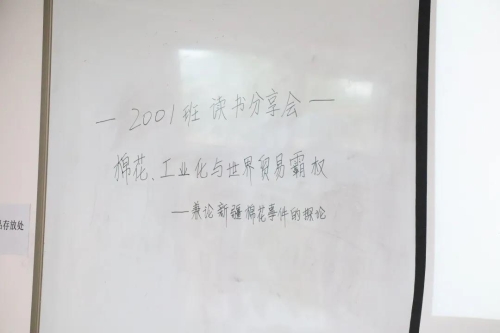 — 2001班 读书分享会 —
棉花、工业化与世界贸易霸权
——兼论新疆棉花事件的探论
品存放处